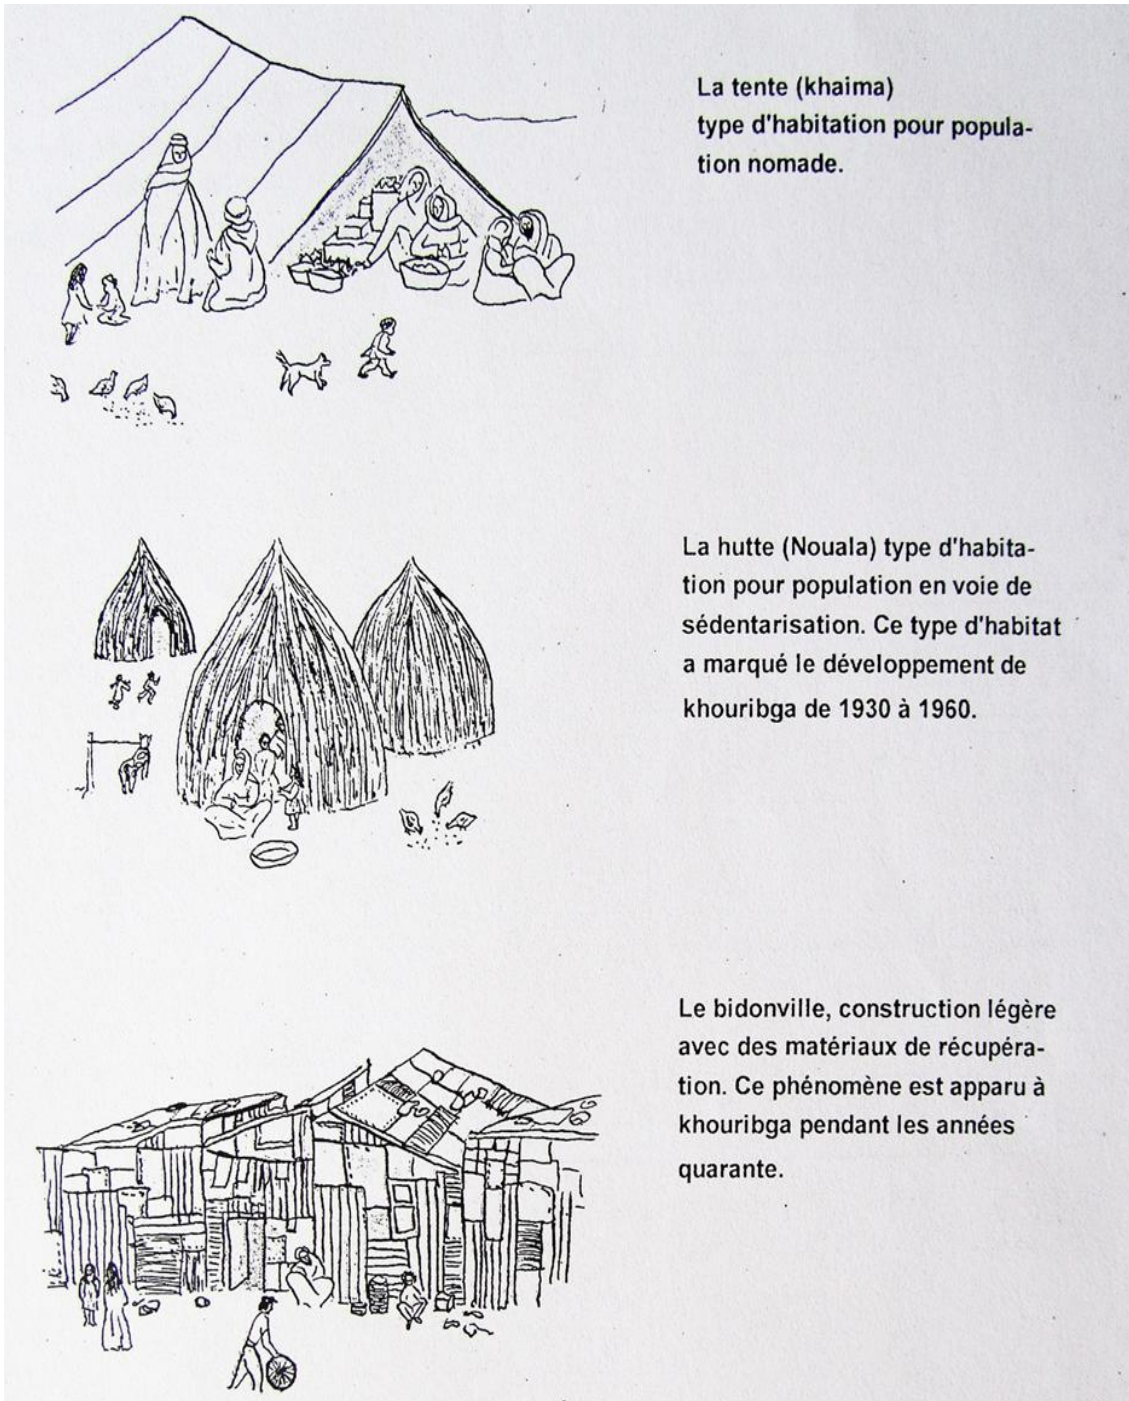 La tente (khaima)
type d'habitation pour popula-
tion nomade.
La hutte (Nouala) type d'habita-
tion pour population en voie de
sédentarisation. Ce type d'habitat
a marqué le développement de
khouribga de 1930 à 1960.
Le bidonville, construction légère
avec des matériaux de récupéra-
tion. Ce phénomène est apparu à
khouribga pendant les années
quarante.